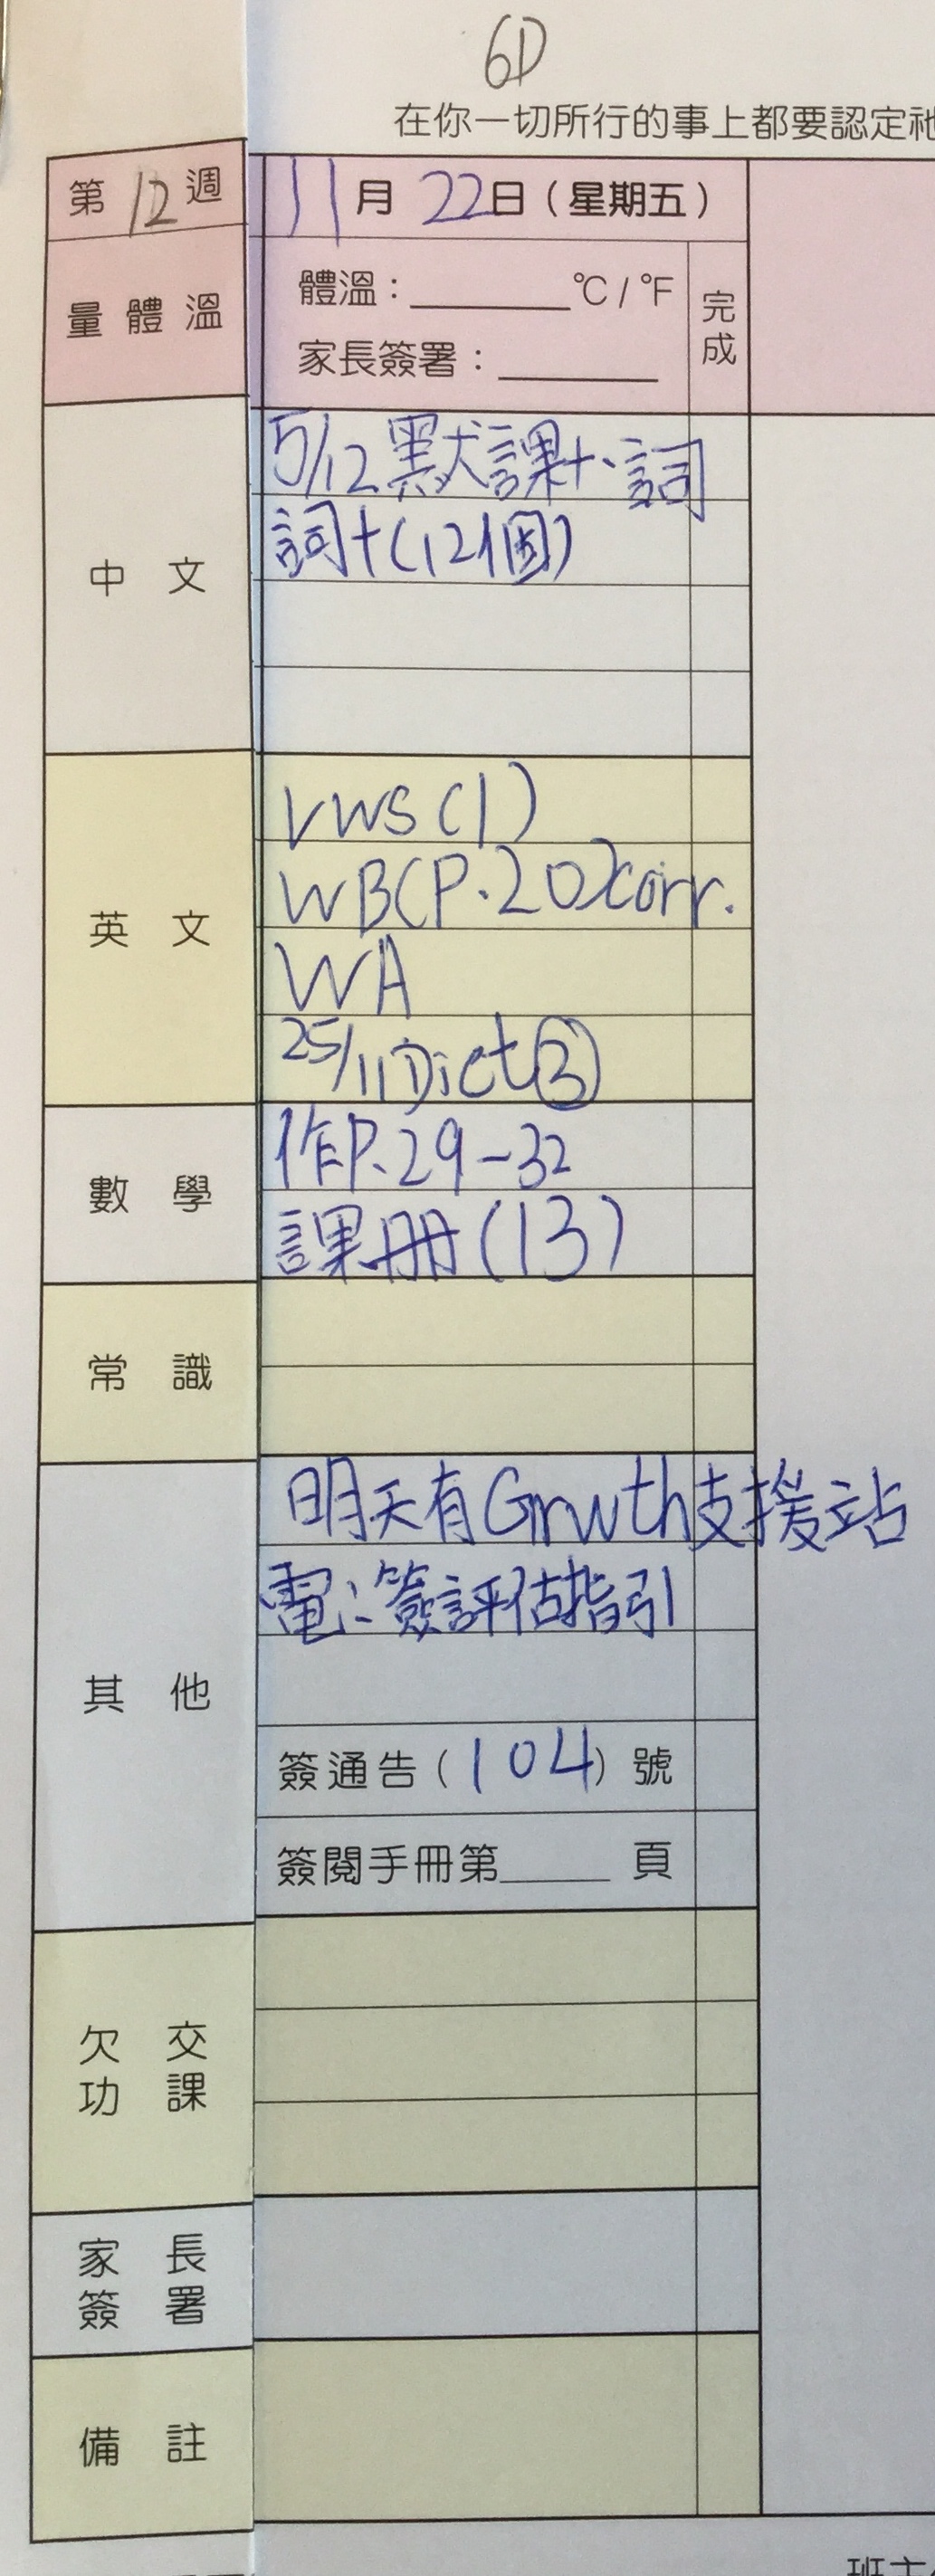 6D
在你一切所行的事上都要認定祂
第12週 11月22日(星期五)
量體溫
體溫：______°C / °F
家長簽署：______
完成
中文
5/12 默課十、詞
詞十(12個)
英文
VWS(1)
WB(P.20)corr.
WA
25/11Dict③
數學
作P.29-32
課册(13)
常識
其他
明天有Grwth支援站
電:簽評估指引
簽通告(104)號
簽閱手冊第____頁
欠交功課
家長簽署
備註